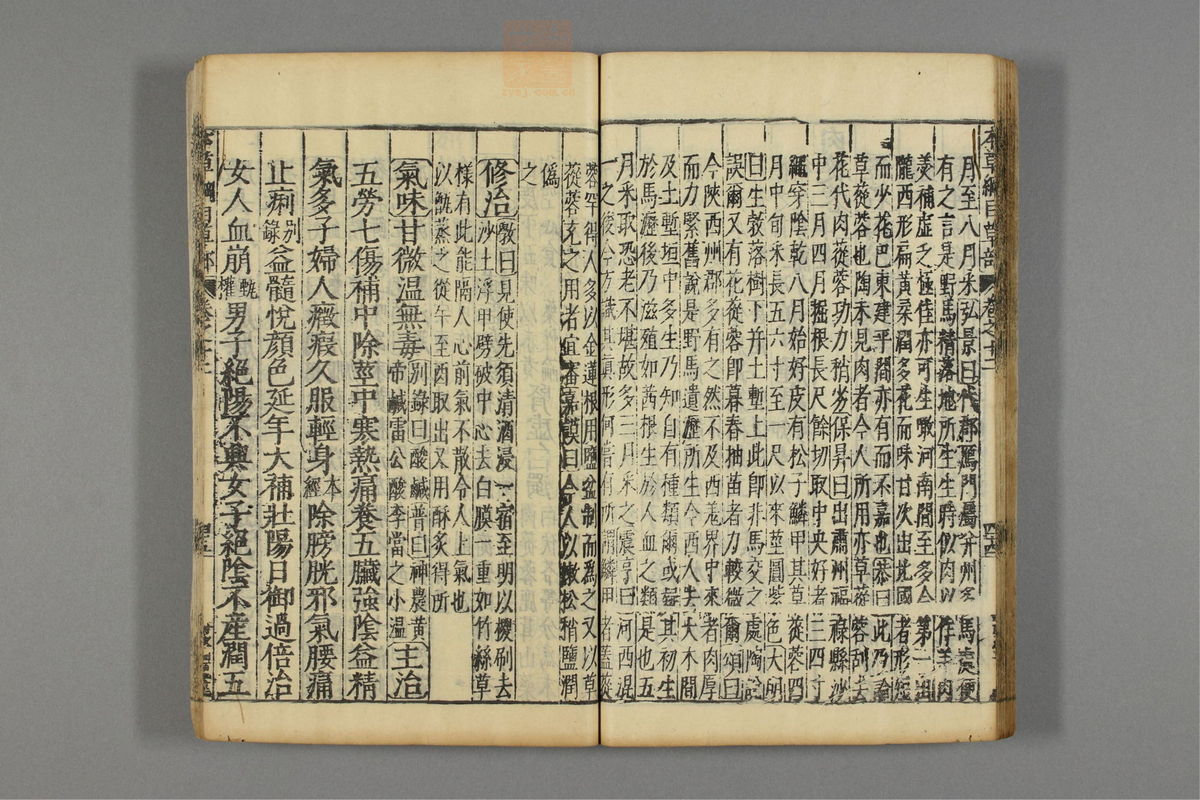 本草綱目草部 卷之十二 四十四
月至八月采弘景曰代郡鴈門屬并州多馬處便
有之言是野馬精落地所生生時似肉以作羊肉
羹補虛乏極佳亦可生噉河南間至多今第一出
隴西形扁黃柔潤多花而味甘次出北國者形短
而少花巴東建平間亦有而不嘉也恭曰此乃論
草蓯蓉也陶未見肉者今人所用亦草蓯蓉刮去
花代肉蓯蓉功力稍劣保昇曰出肅州福祿縣沙
中三月四月掘根長尺餘切取中央好者三四寸
繩穿陰乾八月始好皮有松子鱗甲其草蓯蓉四
月中旬采長五六寸至一尺以來莖圓紫色大明
曰生敎落樹下并土塹上此即非馬交之處陶說
誤爾又有花蓯蓉即暮春抽苗者力較微爾頌曰
今陝西州郡多有之然不及西羌界中來者肉厚
而力緊舊說是野馬遺瀝所生今西人云大木間
及土塹垣中多生乃知自有種類爾或疑其初生
於馬瀝後乃滋殖如茜根生於人血之類是也五
月采取恐老不堪故多三月采之震亨曰河西混
一之後今方識其眞形何嘗有所謂鱗甲者蓋蓯
蓉罕得人多以金蓮根用鹽盆制而爲之又以草
蓯蓉充之用者宜審嘉謨曰今人以嫩松梢鹽潤
偽
之
修治斆曰凡使先須清酒浸一宿至明以椶刷去
沙土浮甲劈破中心去白膜一重如竹絲草
樣有此能隔人心前氣不散令人上氣也
以甑蒸之從午至酉取出又用酥炙得所
氣味甘微溫無毒別錄曰酸鹹普曰神農黃
帝鹹雷公酸李當之小溫主治
五勞七傷補中除莖中寒熱痛養五臟強陰益精
氣多子婦人癥瘕久服輕身本經除膀胱邪氣腰痛
止痢別錄益髓悅顏色延年大補壯陽日御過倍治
女人血崩甄權男子絕陽不興女子絕陰不產潤五
本草綱目草部 卷之十二 四十五